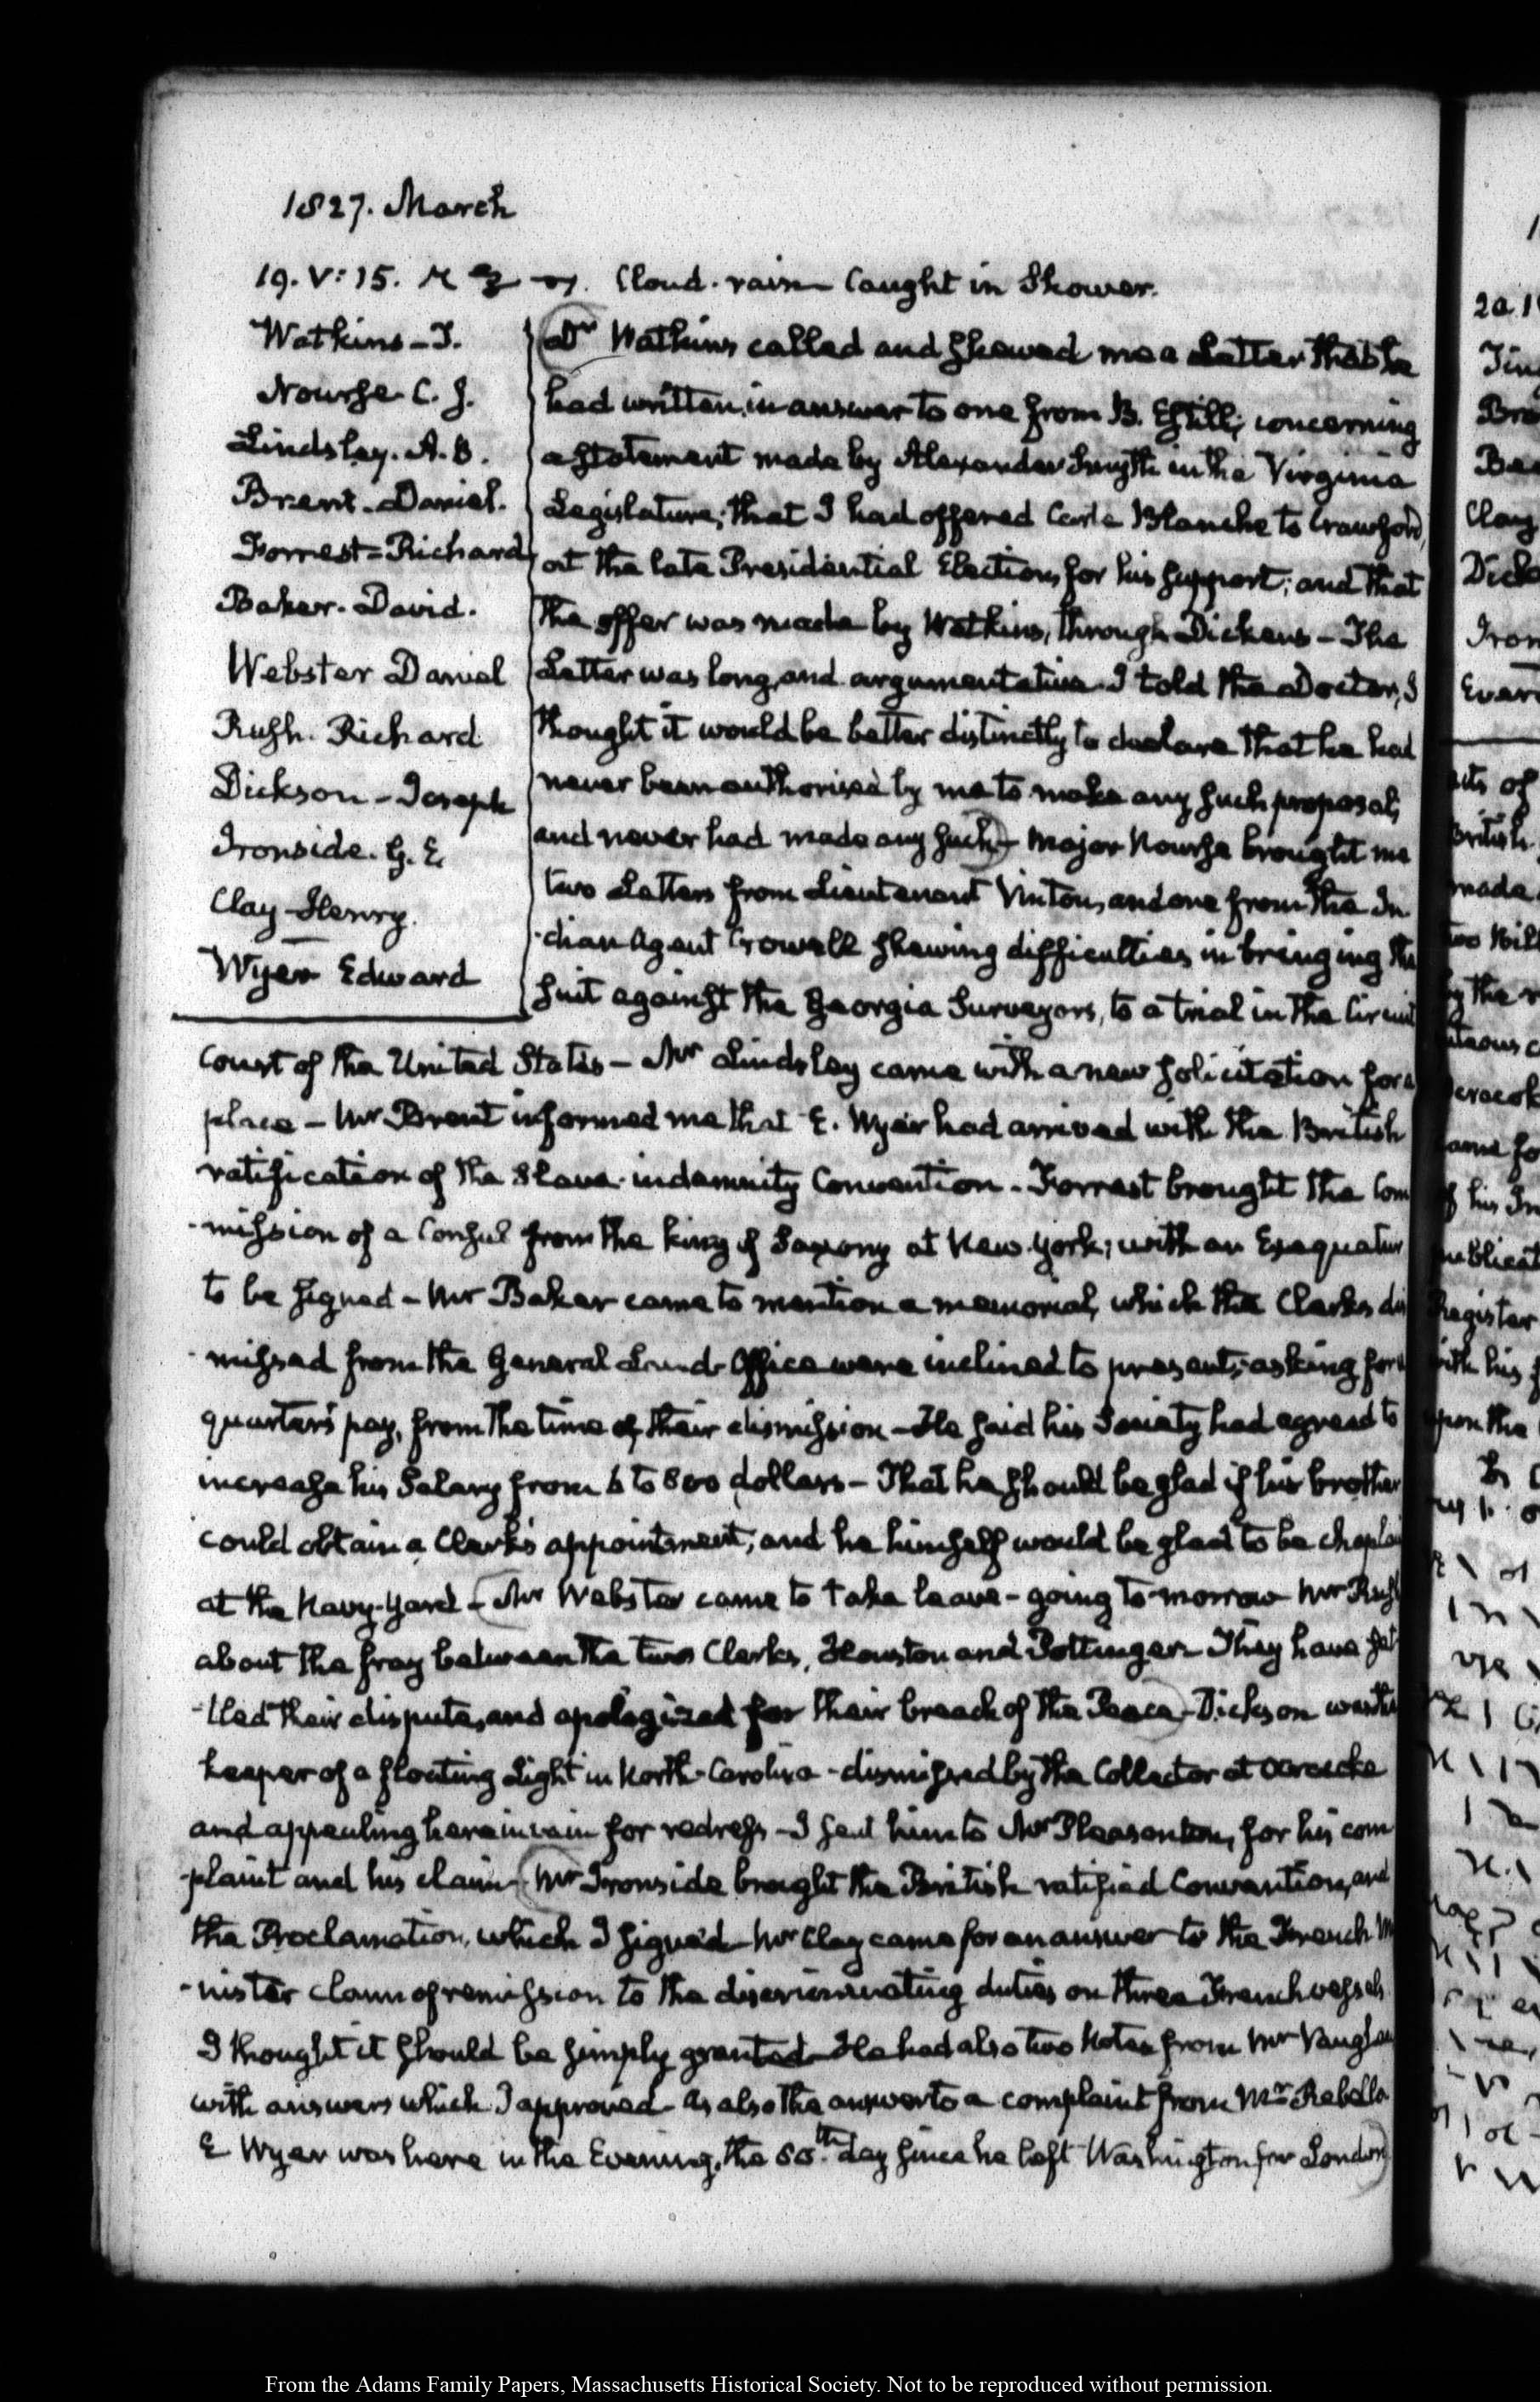 1827. March
19. V:15. Cloud. rain Caught in Shower.
Watkins - T.
Nourse. C. J.
Lindsley. A. B.
Brent. Daniel.
Forrest = Richard
Baker. David.
Webster Daniel
Rush. Richard
Dickson - Joseph
Ironside. G. E.
Clay - Henry.
Wyer Edward
Dr Watkins called and shewed me a Letter that he
had written, in answer to one from B. Estill, concerning
a statement made by Alexander Smyth in the Virginia
Legislature; that I had offered Carte Blanche to Crawford,
at the late Presidential Election, for his support; and that
the offer was made by Watkins, through Dickens - The
Letter was long, and argumentative. I told the Doctor, I
thought it would be better distinctly to declare that he had
never been authorised by me to make any such proposal,
and never had made any such - Major Nourse brought me
two Letters from Lieutenant Vinton, and one from the In
-dian Agent Crowell shewing difficulties in bringing the
suit against the Georgia Surveyors, to a trial in the Circuit
Court of the United States - Mr Lindsley came with a new solicitation for a
place - Mr Brent informed me that E. Wyer had arrived with the British
ratification of the Slave-indemnity Convention - Forrest brought the Com
-mission of a Consul from the King of Saxony at New-York; with an Exequatur
to be signed - Mr Baker came to mention a memorial, which the Clerks dis
-missed from the General Land-Office were inclined to present; asking for a
quarter's pay, from the time of their dismission - He said his Society had agreed to
increase his Salary from 6 to 800 dollars - That he should be glad if his brother
could obtain a Clerk's appointment, and he himself would be glad to be chaplain
at the Navy-Yard - Mr Webster came to take leave - going to-morrow Mr Rush
about the fray between the two Clerks, Houston and Pottinger. They have set
-tled their dispute, and apologized for their breach of the Peace - Dickson was the
keeper of a floating Light in North-Carolina - dismissed by the Collector at Ocracocke
and appealing here in vain for redress - I sent him to Mr Pleasonton, for his com
-plaint and his claim - Mr Ironside brought the British ratified Convention, and
the Proclamation, which I signed - Mr Clay came for an answer to the French Mi
-nister claim of remission to the discriminating duties on three French vessels
I thought it should be simply granted - He had also two Notes from Mr Vaughan
with answers which I approved - as also the answer to a complaint from Mr Rebello
E Wyer was here in the Evening, the day since he left Washington for London
From the Adams Family Papers, Massachusetts Historical Society. Not to be reproduced without permission.